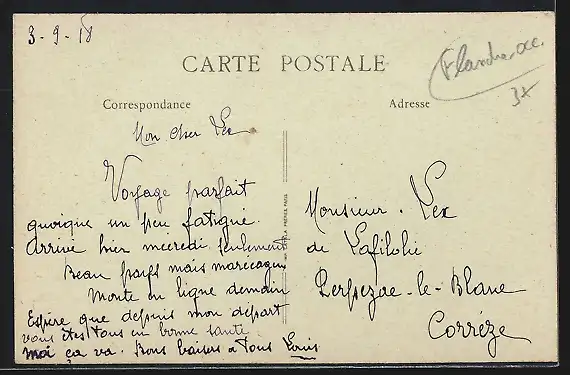 3-9-18
CARTE POSTALE
Flandre occ.
3x
Correspondance
Adresse
Mon cher Lex
Voyage parfait
quoique un peu fatigue.
Arrivé hier mecredi seulement
Beau pays mais marécageux
Monte en ligne demain
Espère que depuis mon départ
vous êtes tous en bonne santé.
moi ça va. Bons baisers a tous Louis
Monsieur. Lex
de
Perpezac-le-Blanc
Corrèze